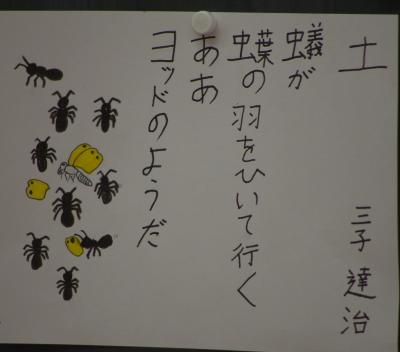 土
三子達治
蟻が
蝶の羽をひいて行く
ああ
ヨッドのようだ